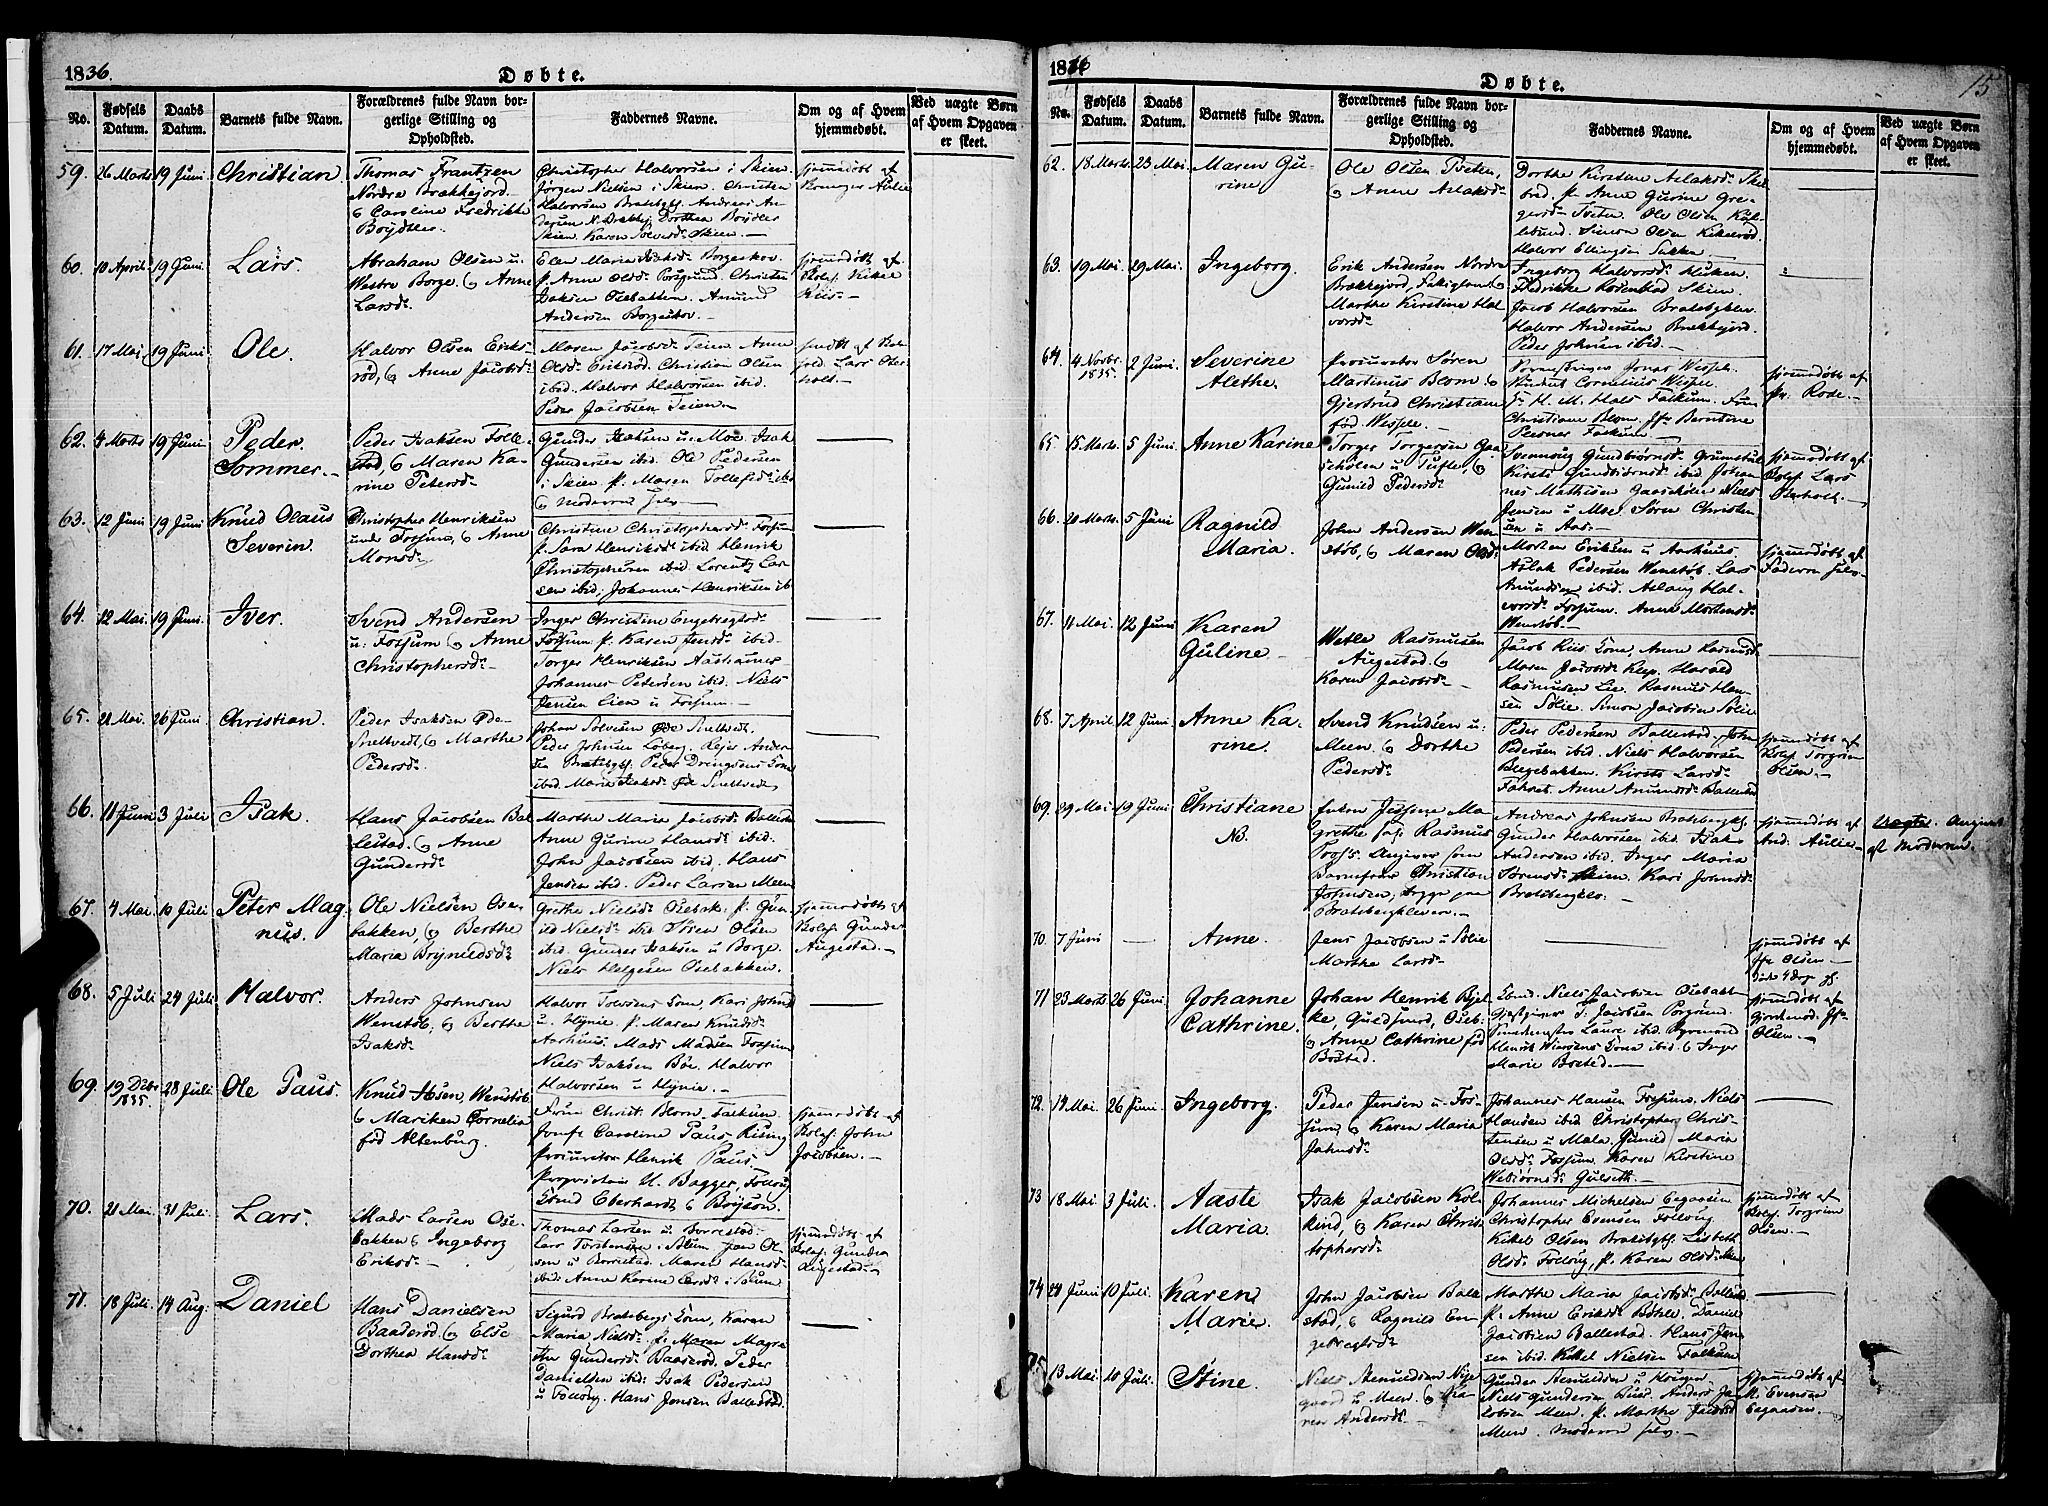 1836.
Døbte.
No.
Fødsels Datum.
Daabs Datum.
Barnets fulde Navn.
Forældrenes fulde Navn bor-
gerlige Stilling og
Opholdsted.
Faddernes Navne.
Om og af Hvem
hjemmedøbt.
Ved uægte Børn
af Hvem Opgaven
er skeet.
59. 26 Marts 19 Juni Christian
Thomas Frantzen
Nordre Brækkejord.
& Caroline Fredrikke
Boydler
Christopher Halvorsen i Skien
Jørgen Nielsen i Skien. Christen
Halvorsen Bratsbgkl. Andreas An-
dersen N. Brekkej. Dorthea Boydler
Skien. Karen Solvesdr. Skien.
hjemmedøbt af
60. 10 April 19 Juni. Lars.
Abraham Olsen u.
Westre Borge. & Anne
Larsdr.
Elen Maria Isaksdr. Borgeskov.
p. Anne Olsdr. Porsgrund. Christen
Isaksen Osebakken. Amund
Andersen Borgeskov.
hjemmedøbt af
Kikel
Riis.
61. 17 Mai 19 Juni Ole.
Halvor Olsen Eriks-
rød, & Anne Jacobsdr.
Maren Jacobsdr. Teien Anne
Olsdr. Eriksrød. Christian Olsen
ibid. Halvor Halvorsen ibid.
Peder Jacobsen Teien.
Lars Oter-
holt.
62. 4 Marts 19 Juni Peder
Sommer.
Peder Isaksen Folle-
& Maren Ka-
rine Petersdr.
Gunder Isaksen u. Moe. Isak
Gundersen ibid. Ole Pedersen
i Skien p. Maren Tollefsdr. ibid
& Moderen selv
63. 12 Juni 19 Juni Knud Olaus
Severin.
Christopher Henriksen
under Fossum, & Anne
Monsdr.
Christine Christophersdr. Fossum
p. Sara Henriksdr. ibid. Henrik
Christophersen ibid. Lorentz Lar-
sen ibid. Johannes Henriksen ib
64. 12 Mai. 19 Juni. Iver.
Svend Andersen
u. Fossum & Anne
Christophersdr.
Inger Christine Engebregtsdr.
Fossum p. Karen Jensdr. ibid.
Torger Henriksen Aashammer
Johannes Petersen ibid. Niels
Jensen Lien u Fossum.
65. 21 Mai. 26 Juni Christian.
Peder Isaksen Øde-
Sneltvedt, & Marthe
Pedersdr.
Johan Solvesen Øde Sneltvedt.
Peder Johnsen Løberg. Rejer Ander-
sen Bratsbgkl. Peder Drengsens Kone
ibid. Marie Isaksdr. Øde Sneltvedt,
66. 11 Juni 3 Juli Isak.
Hans Jacobsen Bal-
lestad. & Anne
Gundersdr.
Marthe Maria Jacobsdr. Ballestad
Anne Gurine Hansdr. ibid.
John Jacobsen ibid. Hans
Jensen ibid. Peder Larsen Meen
67. 4 Mai. 10 Juli Peter Mag-
nus.
Ole Nielsen Ose-
bakken, & Berthe
Maria Brynildsdr.
Grethe Nielsdr. Osebak. p. Gun-
ild Nielsdr. ibid Søren Olsen
ibid. Gunder Isaksen u Borge.
Niels Helgesen Osebakken.
hjemmedøbt af
Kolef. Gunder
Augestad.
68. 5 Juli 24 Juli Halvor.
Anders Johnsen
Wenstøb, & Berthe
Isaksdr.
Halvor Tovesens Kone, Kari Johnsdr
u. Hynie. p. Maren Knudsdr.
Aarhuus. Mads Madsen Fossum
Niels Isaksen Bøe. Halvor
Halvorsen u Hynie.
69. 19 Debr. 1835. 28 Juli. Ole Paus.
Knud Ibsen, Wenstøb
& Mariken Cornelia
fød Altenburg.
Frue Christ. Blom Falkum
Jomf. Caroline Paus Rising
Procurator Henrik Paus.
Proprietair U. Bagger, Follaug
Stud Eberhardt & Boyson.
hjemmedøbt af
Kolef. John
Jacobsen.
70. 21 Mai. 31 Juli. Lars.
Mads Larsen Ose-
bakken & Ingeborg
Eriksdr.
Thomas Larsen u. Borrestad.
Lars Torstensen i Solum Jan Ol-
sen u Borrestad. Maren Hansdr.
ibid. Anne Karine Larsdr. i Solum
hjemmedøbt af
Kolef. Gunder
Augestad.
71. 18 Juli. 14 Aug. Daniel
Hans Danielsen
Baaderød. & Else
Dorthea Hansdr.
Sigurd Bratsbergs Kone, Karen
Maria Nielsdr. p. Maren Magre-
the Gundersdr. Baaderød. Peder
Danielsen ibid. Isak Pedersen
u Follaug. Hans Jensen Ballestad.
1836
Døbte.
15
No.
Fødsels Datum.
Daabs Datum.
Barnets fulde Navn.
Forældrenes fulde Navn bor-
gerlige Stilling og
Opholdsted.
Faddernes Navne.
Om og af Hvem
hjemmedøbt.
Ved uægte Børn
af Hvem Opgaven
er skeet.
62. 18 Marts 23 Mai. Maren Gu-
rine.
Ole Olsen Tveten,
& Anne Aslaksdr.
Dorthe Kirstine Aslaksdr. Skil-
bred. p. Anne Gurine Gre-
gersdr. Tveten. Ole Olsen
Simon Olsen Kikelsrød.
Halvor Ellingsen
63. 19 Mai. 29 Mai. Ingeborg.
Erik Andersen Nordre
Brækkejord, &
Marthe Kirstine Hal-
vorsdr.
Ingeborg Halvorsdr.
Fredrikke Rosenblad Skien.
Jacob Halvorsen Bratsbgklev.
Halvor Andersen Brekkejord.
Peder Johnsen ibid.
64. 4 Novbr. 1835. 2 Juni. Severine
Alethe.
Procurator Søren
Martinus Blom &
Gjertrud Christiane
fød Wesseltoft.
Jonas
Student Cornelius
H. M. Hals Falkum. Frue
Christiane Blom. Jfr. Berntine
Plesner Falkum.
hjemmedøbt af
Pr. Rode.
65. 15 Marts. 5 Juni. Anne Karine
Torger Torgersen Gaa-
sholen u Tufte, &
Gunild Pedersdr.
Svennoug Gundbiørnsdr. Grumstul
Kirsti Gundbiørnsdr. ibid. Johan-
nes Mathisen Gaasholen Niels
Jensen u Moe. Søren Christen-
sen u Aas.
hjemmedøbt af
Kolef. Lars
Oterholt.
66. 20 Marts. 5 Juni Ragnild
Maria.
John Andersen Wen-
støb, & Maren Olsdr.
Morten Eriksen u Aarhuus.
Aslak Pedersen Wenstøb. Lars
Amundsen ibid. Aslaug Hal-
vorsdr. Fossum. Anne Mortensdr.
Wenstøb.
hjemmedøbt af
Faderen selv.
67. 11 Mai. 12 Juni Karen
Guline.
Wetle Rasmusen
Augestad. &
Karen Jacobsdr.
Jacob Riis Kone, Anne Rasmusdr
Maren Jacobsdr. Klep. Harald
Rasmusen Lie. Rasmus Han-
sen Sølie. Simon Jacobsen Sølie
68. 7 April. 12 Juni. Anne Ka-
rine.
Svend Knudsen u.
Meen. & Dorthe
Pedersdr.
Peder Pedersen Ballestad. John
Pedersen ibid. Niels Halvorsen
Blegebakken. Kirsti Larsdr.
Anne Amundsdr. Ballestad
hjemmedøbt af
Kolef. Torgrim
Olsen.
69. 29 Mai 19 Juni. Christiane
NB.
Enken Jensine Ma-
grethe sal. Rasmus
Angiver som
Barnefader Christian
Johnsen,
Bratsbergkleven.
Andreas Johnsen Bratsbergkl.
Gunder Halvorsen ibid. Isak
Andersen ibid. Inger Maria
Sørensdr. Skien. Kari Johnsdr.
Bratsbergkl.
hjemmedøbt af
And. Aulie.
Uægte. Angivet
af Moderen.
70. 7 Juni — Anne.
Jens Jacobsen u Sølie
Marthe Larsdr.
hjemmedøbt af
Jfr. Olsen.
71 23 Marts 26 Juni. Johanne
Cathrine.
Johan Henrik Bjel-
ke Osebk.
& Anne Cathrine fød
Borsted.
Niels Jacobsen Osebakken
Gjæstgiver J: Jacobsen Porsgrund.
Laure ibid.
Henrik Kone ibid. & Inger
Marie Borsted.
hjemmedøbt af
Jfr.
Olsen.
72. 14 Mai. 26 Juni. Ingeborg.
Peder Jensen u. Fos-
sum, & Karen Maria
Johnsdr.
Johannes Hansen Fossum. Niels
Hansen ibid Christopher Chris-
tensen u Mæla. Gunild Maria
Olsdr. Fossum. Karen Kirstine
Webiørnsdr. Gulseth.
73 18 Mai. 3 Juli. Aaste
Maria.
Isak Jacobsen Kol-
kind, & Karen Chris-
tophersdr.
Johannes Michelsen Eegaasen
Christopher Evensen Follaug
Kikel Olsen Bratsbgkl. Lisbeth
Olsdr. Follaug, p. Karen Olsdr. Skien
hjemmedøbt af
Kolef. Torgrim
Olsen.
74 24 Juni 10 Juli. Karen
Marie.
John Jacobsen Balle-
stad, & Ragnild En-
gebregtsdr.
Marthe Maria Jacobsdr. Ballestad
p. Anne Eriksdr. Bøhle. Daniel
Jacobsen Ballestad. Hans Jen-
sen ibid. Kikel Nielsen Falkum
75 13 Mai. 10 Juli. Stine.
Niels Amundsen Nye-
gaard u Meen. & Ka-
ren Andersdr.
Gunder Amundsen u
Niels Gundersen Anders Ja-
cobsen Meen. p. Marthe Jacobsdr
Meen. Moderen selv.
hjemmedøbt af
M. Evensen
Eegaasen.